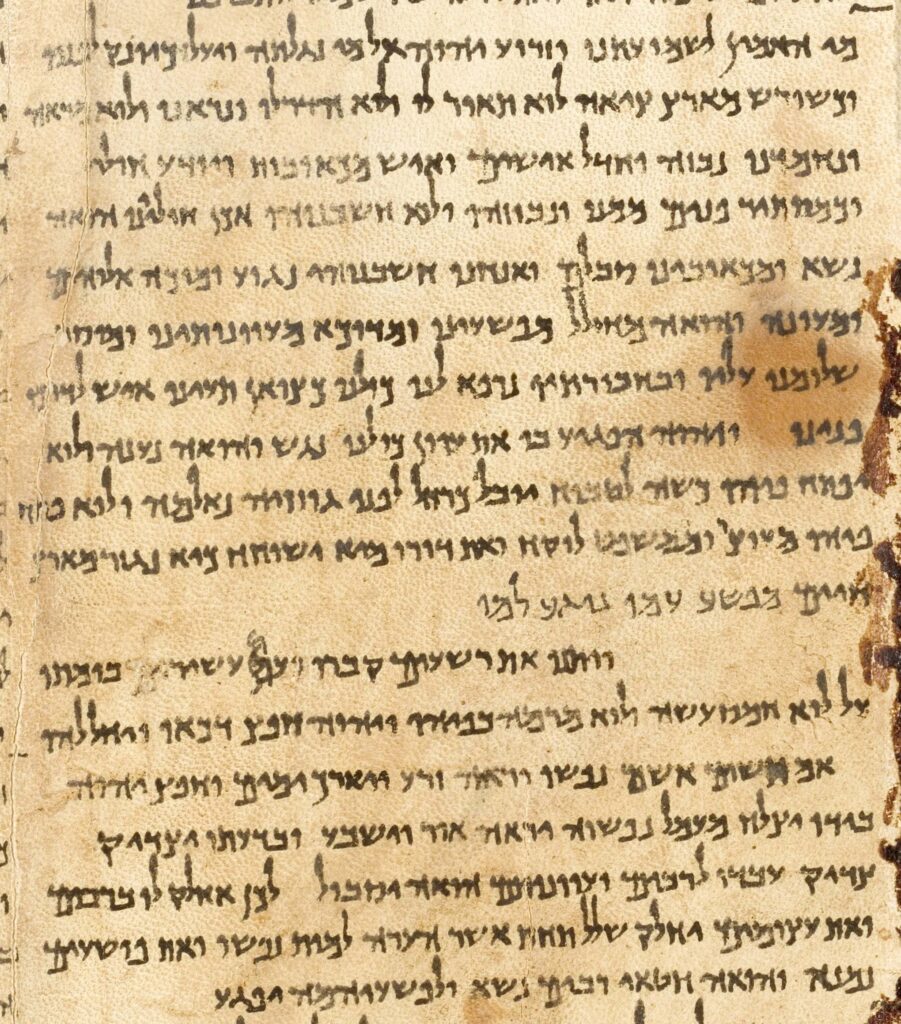 מי האמין לשמועתנו וזרוע יהוה אל מי נגלתה ויעל כיונק לפניו
וכשורש מארץ ציה לוא תאור לו ולוא הדר לו ונראנו ולוא מראה
ונחמדנו נבזה וחדל אישים ואיש מכאובות ויודע חולי
וכמסתיר פנים ממנו ונבוזהו ולוא חשבנוהו אכן חוליינו הואה
נשא ומכאובינו סבלם ואנחנו חשבנוהו נגוע ומוכה אלוהים
ומעונה והואה מחולל מפשעינו ומדוכא מעוונותינו ומוסר
שלומנו עליו ובחבורתיו נרפא לנו כולנו כצואן תעינו איש לדרכו
פנינו ויהוה הפגיע בו את עוון כולנו נגש והואה נענה ולוא
יפתח פיהו כשה לטבוח יובל כרחל לפני גוזזיה נאלמה ולוא פתח
פיהו מעוצר וממשפט לוקח ואת דורו מיא ישוחח כיא נגזר מארץ
חיים מפשע עמו נוגע למו
ויתנו את רשעים קברו ועם עשירים בומתו
על לוא חמס עשה ולוא מרמה בפיהו ויהוה חפץ דכאו ויחללהו
אם תשים אשם נפשו יראה זרע ויארך ימים וחפץ יהוה
בידו יצלח מעמל נפשוה יראה אור וישבע ובדעתו יצדיק
צדיק עבדו לרבים ועוונותם הואה יסבול לכן אחלק לו ברבים
ואת עצומים יחלק שלל תחת אשר הערה למות נפשו ואת פושעים
נמנה והואה חטאי רבים נשא ולפשעיהמה יפגע